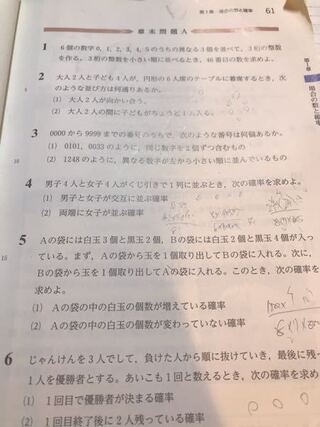 第1章 場合の数と確率 61
章末問題A
1 6個の数字0, 1, 2, 3, 4, 5のうちの異なる3個を並べて, 3桁の整数
を作る。3桁の整数を小さい順に並べるとき, 46番目の数を求めよ。
2 大人2人と子ども4人が, 円形の6人席のテーブルに着席するとき, 次
のような並び方は何通りあるか。
(1) 大人2人が向かい合う。
(2) 大人2人の間に子どもがちょうど1人入る。
3 0000から9999までの番号のうちで, 次のような番号は何個あるか。
(1) 0101, 0033のように, 同じ数字を2個ずつ含むもの
(2) 1248のように, 異なる数字が左から小さい順に並んでいるもの
4 男子4人と女子4人がくじ引きで1列に並ぶとき, 次の確率を求めよ。
(1) 男子と女子が交互に並ぶ確率
(2) 両端に女子が並ぶ確率
5 Aの袋には白玉3個と黒玉2個, Bの袋には白玉2個と黒玉4個が入っ
ている。まず, Aの袋から玉を1個取り出してBの袋に入れる。次に,
Bの袋から玉を1個取り出してAの袋に入れる。このとき, 次の確率を
求めよ。
(1) Aの袋の中の白玉の個数が増えている確率
(2) Aの袋の中の白玉の個数が変わっていない確率
6 じゃんけんを3人でして, 負けた人から順に抜けていき, 最後に残っ
1人を優勝者とする。あいこも1回と数えるとき, 次の確率を求め
(1) 1回目で優勝者が決まる確率
(2) 1回目終了後に2人残っている確率
5
10
15
第1章
場合の数と